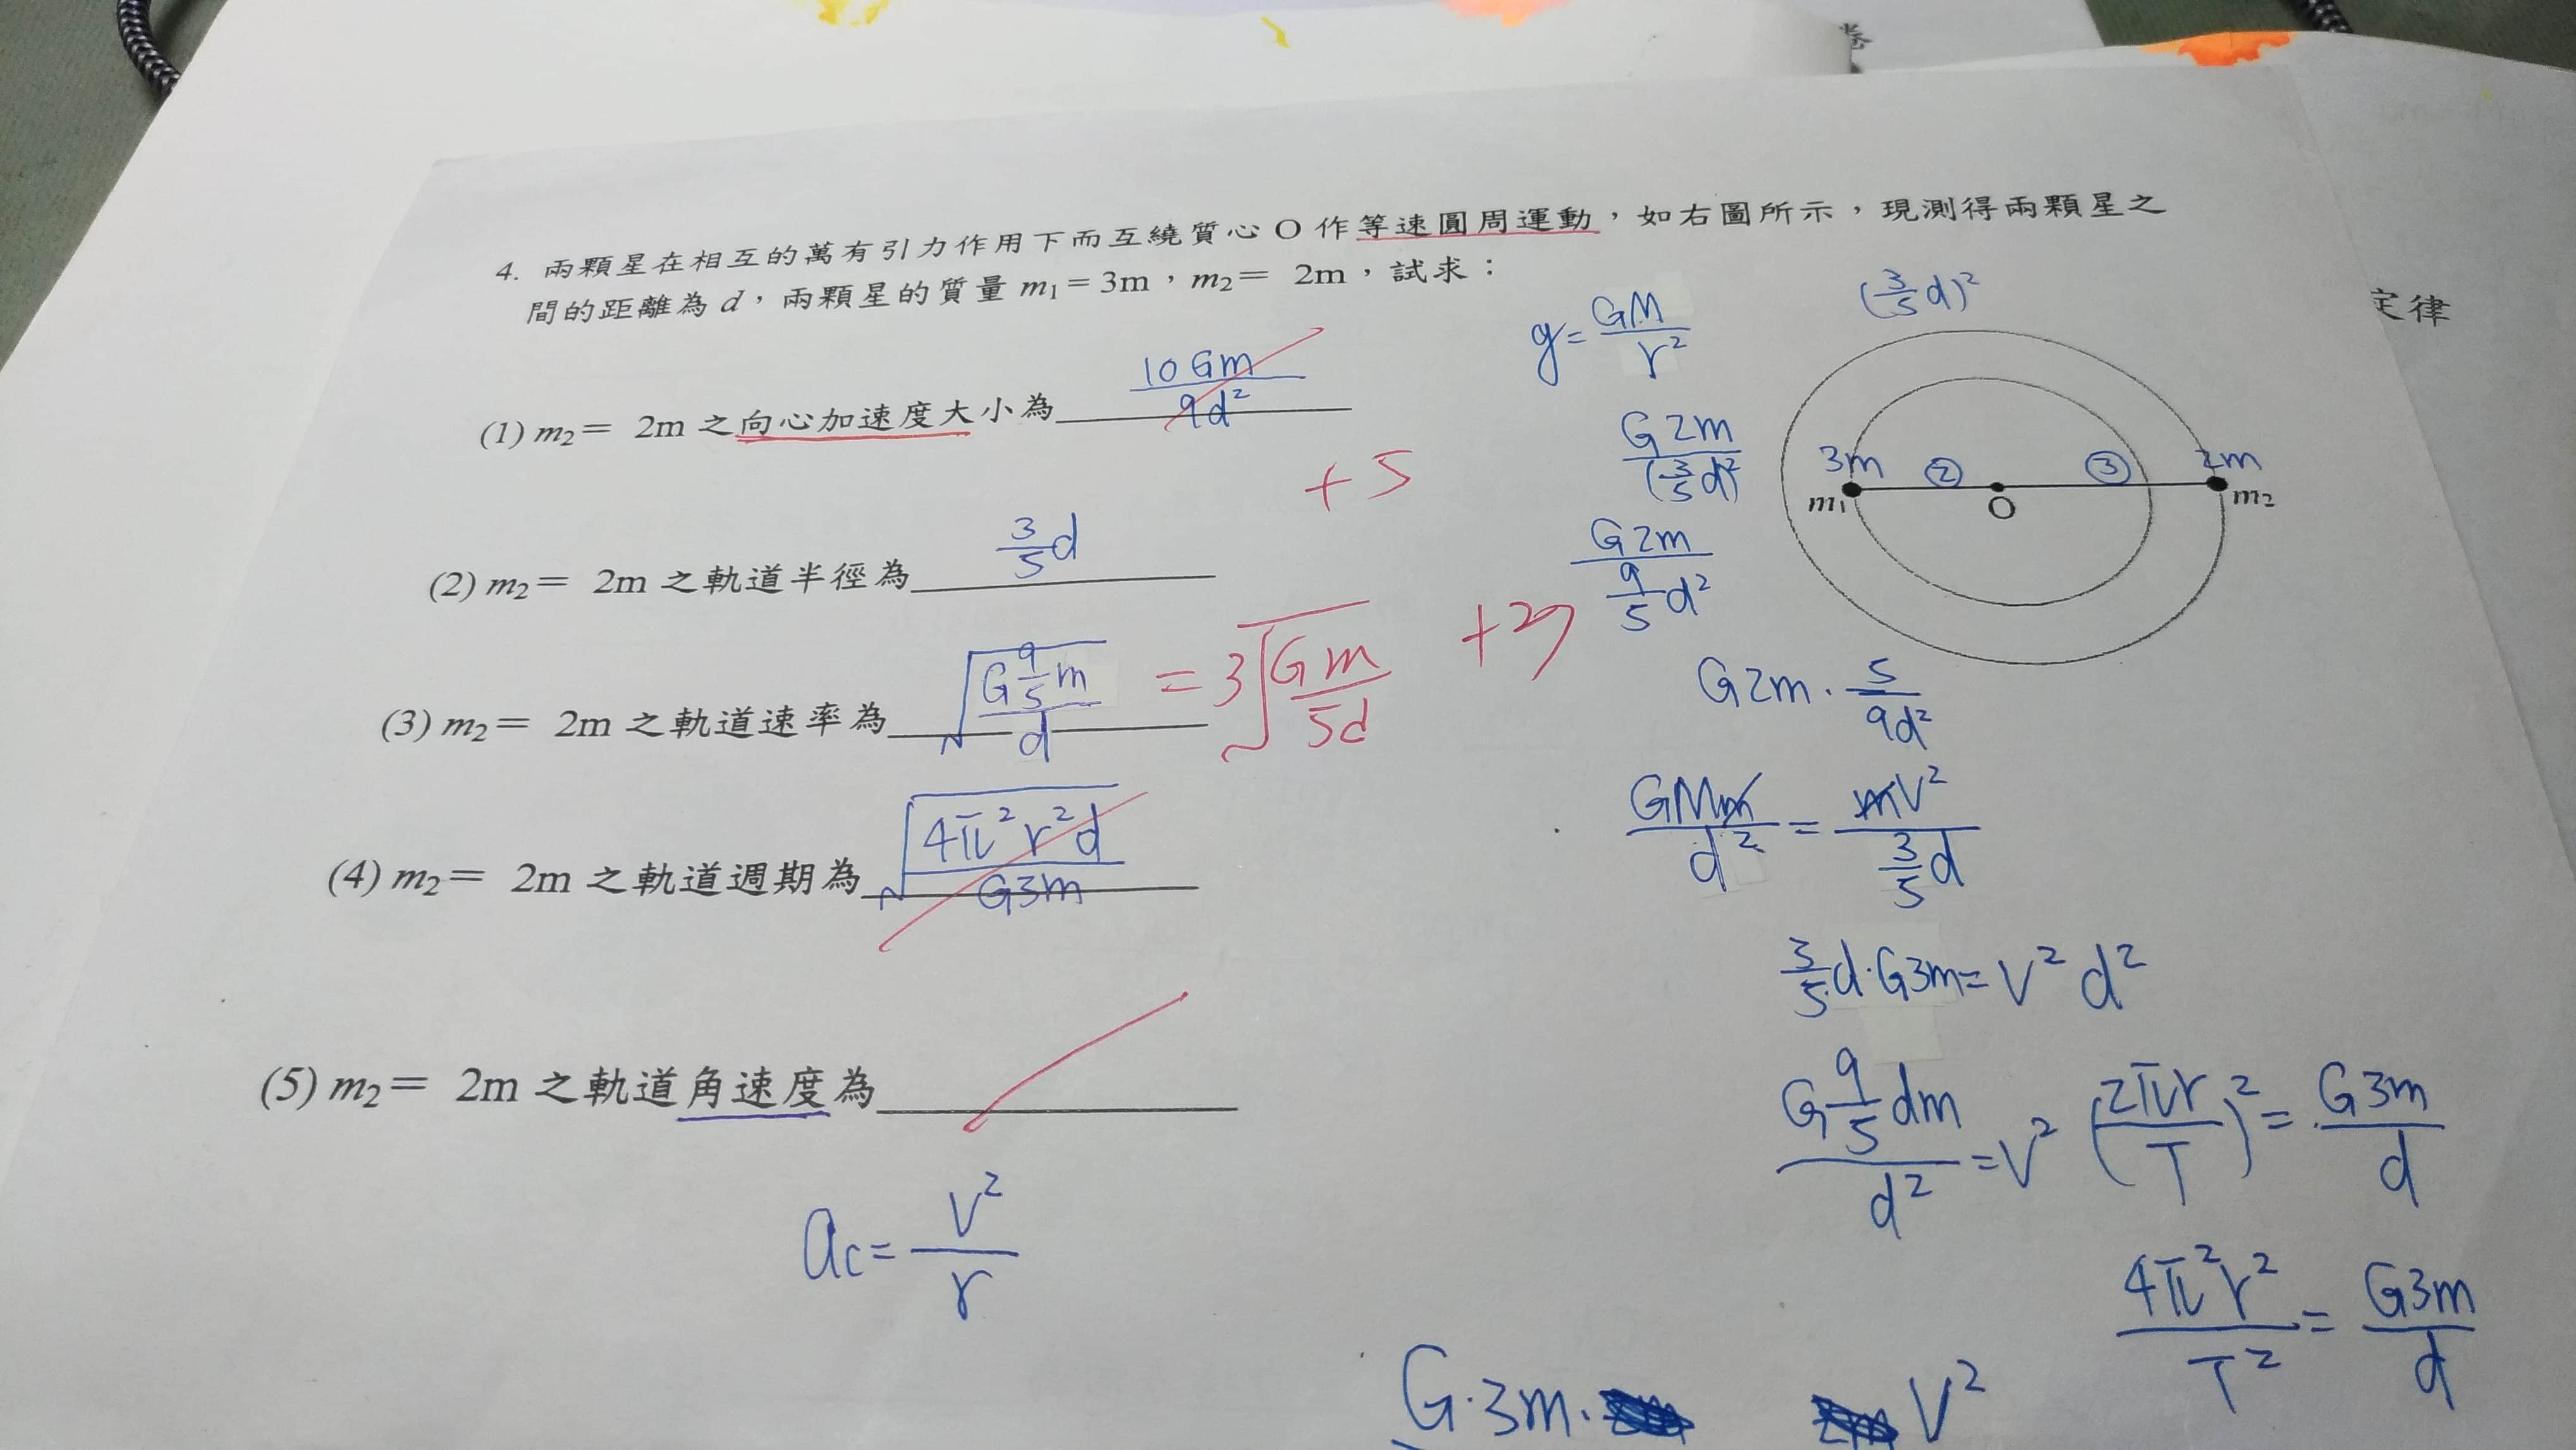 卷
定律
4. 兩顆星在相互的萬有引力作用下而互繞質心 O 作等速圓周運動，如右圖所示，現測得兩顆星之
間的距離為 d，兩顆星的質量 m₁ = 3m，m₂ = 2m，試求：
(1) m₂ = 2m 之向心加速度大小為 10Gm / 9d²
+5
(2) m₂ = 2m 之軌道半徑為 3/5 d
(3) m₂ = 2m 之軌道速率為 √(G 9/5 m / d) = 3√(Gm / 5d)
(4) m₂ = 2m 之軌道週期為 √(4π²r²d / G3m)
(5) m₂ = 2m 之軌道角速度為
ac = V² / r
g = GM / r²
(3/5 d)²
G2m / (3/5 d)²
3m ② ③ 2m
m₁ O m₂
G2m / 9/5 d²
G2m · 5 / 9d²
GMm / d² = mV² / 3/5 d
3/5 d · G3m = V² d²
G 9/5 dm / d² = V²
(2πr / T)² = G3m / d
4π²r² / T² = G3m / d
G·3m· V²